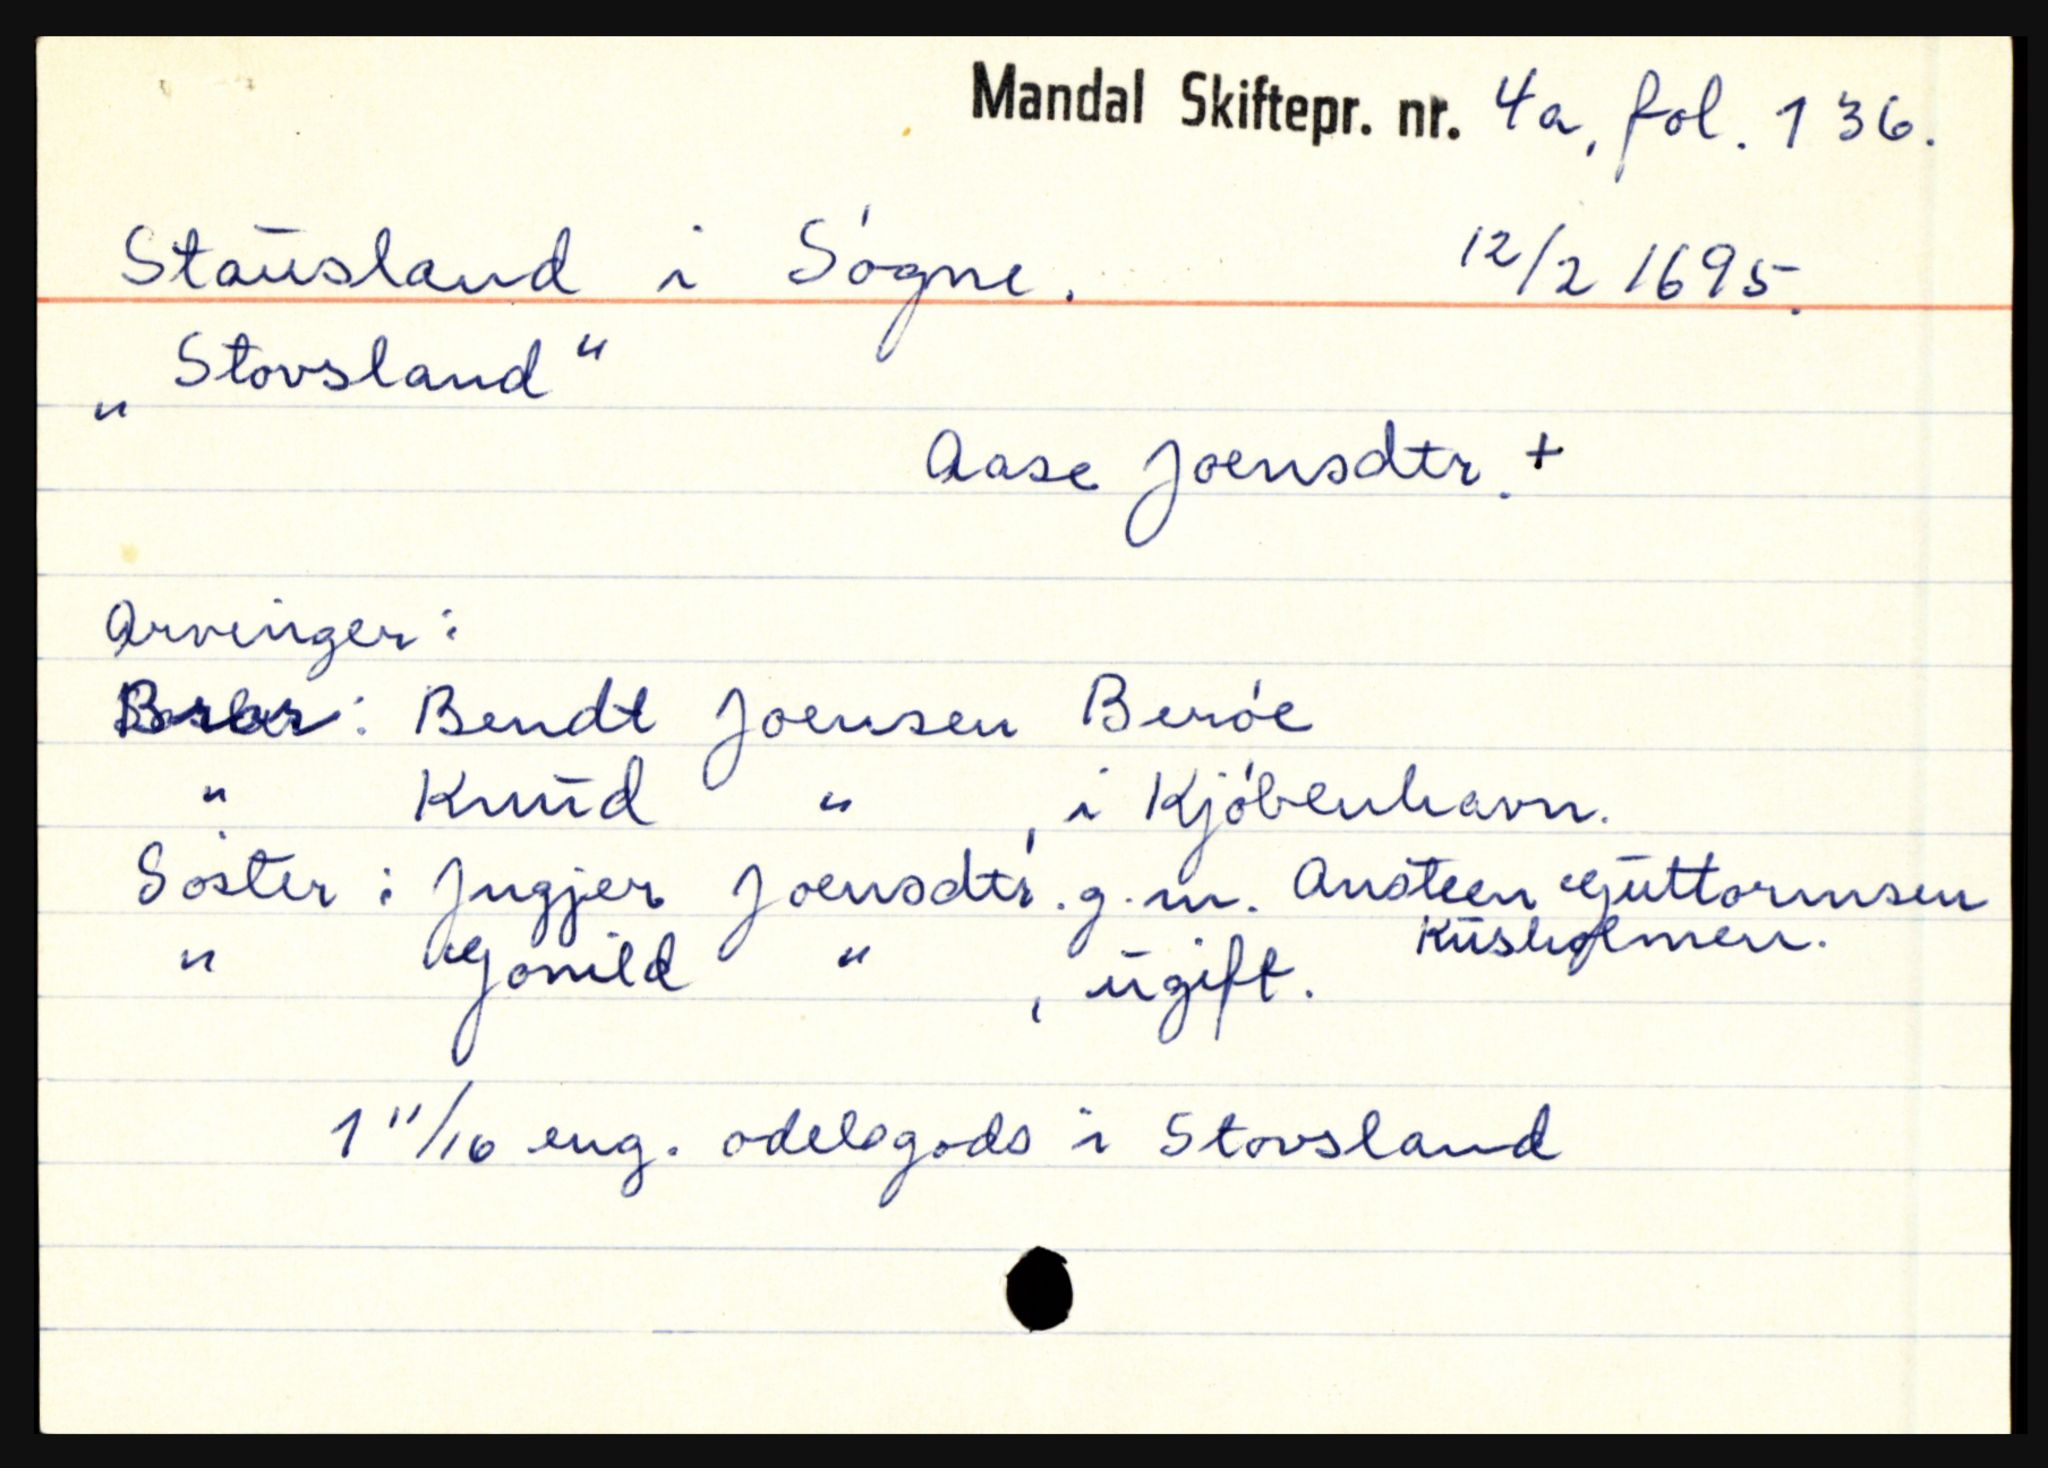 Mandal Skiftepr. nr. 4a, fol. 136.
Stausland i Søgne. 12/2 1695.
„Stovsland“
Aase Joensdtr. +
Arvinger:
Bror: Bendt Joensen Berøe
" Knud " , i Kjøbenhavn.
Søster: Jngjer Joensdtr. g.m. Ansteen Guttormsen
Kusholmen.
" Gonild " , ugift.
1 11/16 eng. odelsgods i Stovsland